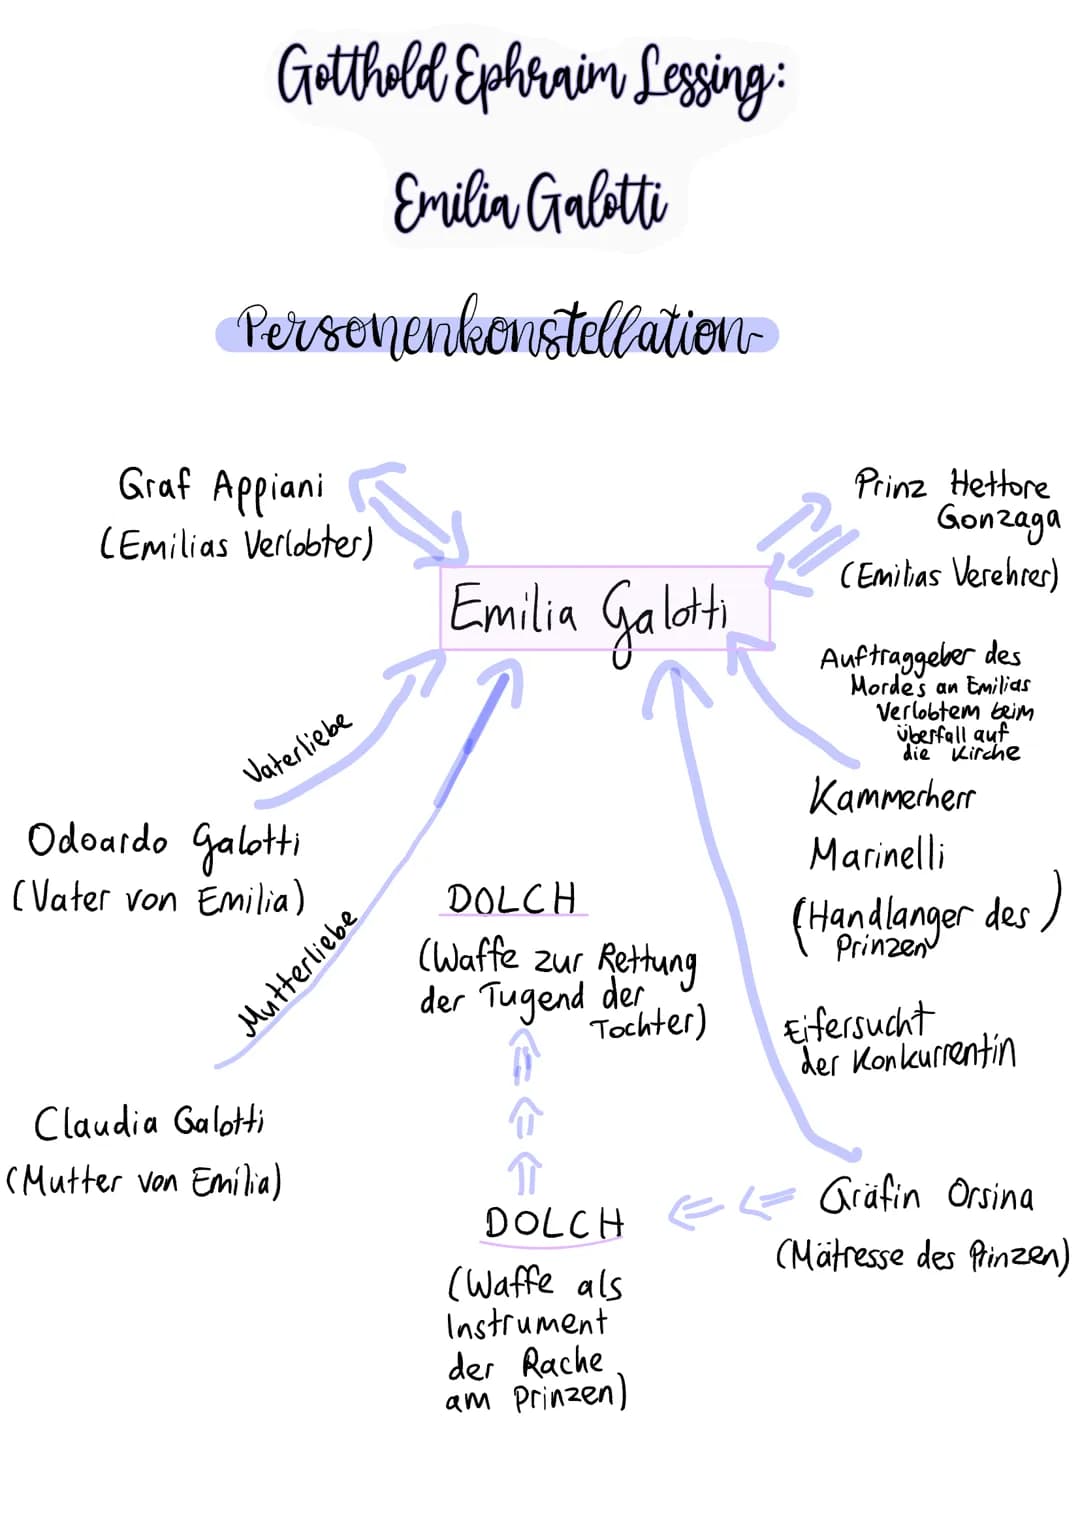 Gotthold Ephraim Lessing:
Emilia Galotti
Personenkonstellation
Graf Appiani
(Emilias Verlobter)
Prinz Hettore
Gonzaga
(Emilias Verehrer)
Emilia Galotti
Auftraggeber des
Mordes an Emilias
Verlobtem beim
überfall auf
die Kirche
Vaterliebe
Kammerherr
Marinelli
(Handlanger des
Prinzen)
Odoardo Galotti
(Vater von Emilia)
DOLCH
(Waffe zur Rettung
der Tugend der
Tochter)
Mutterliebe
Eifersucht
der Konkurrentin
Claudia Galotti
(Mutter von Emilia)
DOLCH
(Waffe als
Instrument
der Rache
am Prinzen)
Gräfin Orsina
(Mätresse des Prinzen)